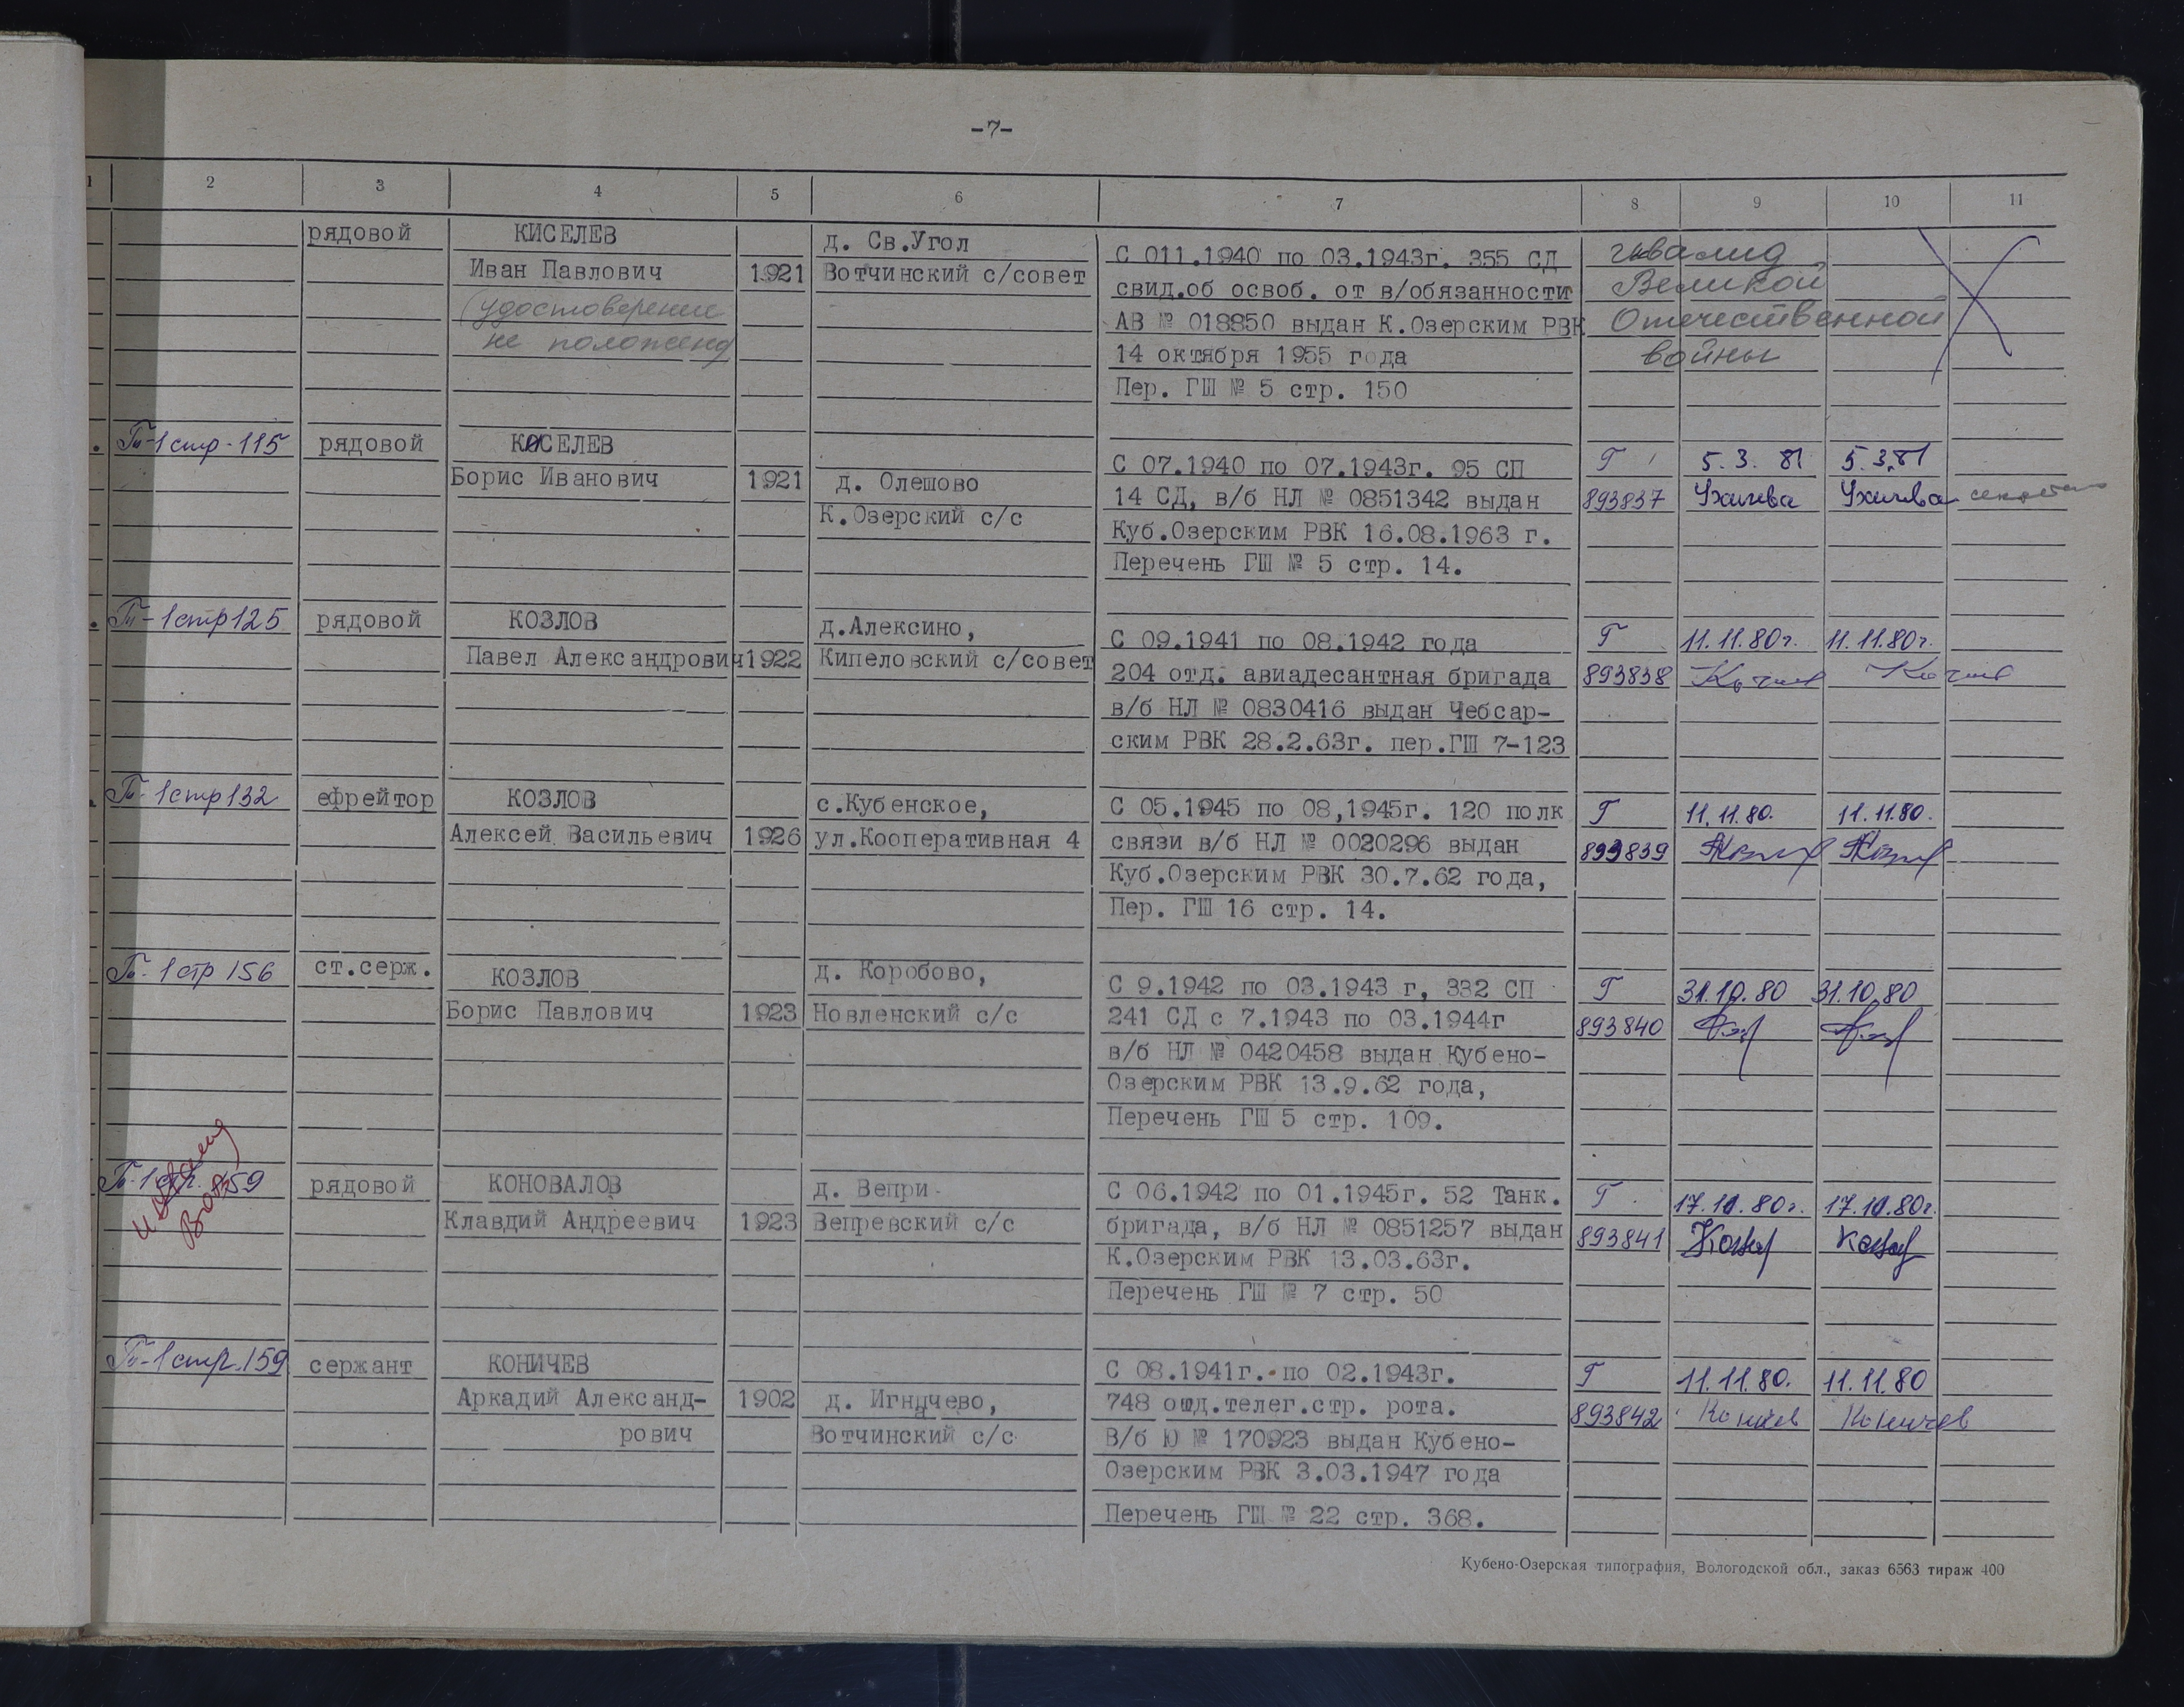 -7-
1 2 3 4 5 6 7 8 9 10 11
рядовой КИСЕЛЕВ д. Св.Угол
Иван Павлович 1921 Вотчинский с/совет
(удостоверение
не положено)
С 011.1940 по 03.1943г. 355 СД
свид.об освоб. от в/обязанности
АВ № 018850 выдан К.Озерским РВК
14 октября 1955 года
Пер. ГШ № 5 стр. 150
инвалид
Великой
Отечественной
войны
Т-1 стр-115 рядовой КОСЕЛЕВ
Борис Иванович 1921 д. Олешово
К.Озерский с/с
С 07.1940 по 07.1943г. 95 СП
14 СД, в/б НЛ № 0851342 выдан
Куб.Озерским РВК 16.08.1963 г.
Перечень ГШ № 5 стр. 14.
Г 5.3.81 5.3.81
893837
Т-1 стр 125 рядовой КОЗЛОВ д.Алексино,
Павел Александрович 1922 Кипеловский с/совет
С 09.1941 по 08.1942 года
204 отд. авиадесантная бригада
в/б НЛ № 0830416 выдан Чебсар-
ским РВК 28.2.63г. пер.ГШ 7-123
Г 11.11.80г. 11.11.80г.
893838
Т-1 стр 132 ефрейтор КОЗЛОВ с.Кубенское,
Алексей Васильевич 1926 ул.Кооперативная 4
С 05.1945 по 08,1945г. 120 полк
связи в/б НЛ № 0020296 выдан
Куб.Озерским РВК 30.7.62 года,
Пер. ГШ 16 стр. 14.
Г 11.11.80. 11.11.80.
893839
Т-1 стр 156 ст.серж. КОЗЛОВ д. Коробово,
Борис Павлович 1923 Новленский с/с
С 9.1942 по 03.1943 г, 332 СП
241 СД с 7.1943 по 03.1944г
в/б НЛ № 0420458 выдан Кубено-
Озерским РВК 13.9.62 года,
Перечень ГШ 5 стр. 109.
Г 31.10.80 31.10.80
893840
инвалид
ВОВ
Т-1 стр. 159 рядовой КОНОВАЛОВ д. Вепри
Клавдий Андреевич 1923 Вепревский с/с
С 06.1942 по 01.1945г. 52 Танк.
бригада, в/б НЛ № 0851257 выдан
К.Озерским РВК 13.03.63г.
Перечень ГШ № 7 стр. 50
Г 17.11.80г. 17.11.80г.
893841
Т-1 стр. 159 сержант КОНИЧЕВ
Аркадий Александ- 1902 д. Игначево,
рович Вотчинский с/с
С 08.1941г. по 02.1943г.
748 отд.телег.стр. рота.
В/б Ю № 170923 выдан Кубено-
Озерским РВК 3.03.1947 года
Перечень ГШ № 22 стр. 368.
Г 11.11.80. 11.11.80
893842 Коничев Коничев
Кубено-Озерская типография, Вологодской обл., заказ 6563 тираж 400